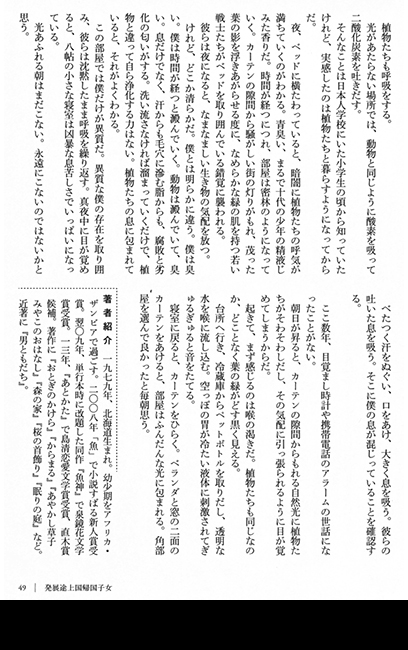 植物たちも呼吸をする。
光があたらない場所では、動物と同じように酸素を吸って
二酸化炭素を吐きだす。
そんなことは日本人学校にいた小学生の頃から知っていた
けれど、実感したのは植物たちと暮らすようになってから
だ。
夜、ベッドに横たわっていると、暗闇に植物たちの呼気が
満ちていくのがわかる。青臭い、まるで十代の少年の精液じ
みた香りだ。時間が経つにつれ、部屋は密林のようになって
いく。カーテンの隙間から騒がしい街の灯りがもれ、茂った
葉の影を浮きあがらせる度に、なめらかな緑の肌を持つ若い
戦士たちがベッドを取り囲んでいる錯覚に襲われる。
彼らは夜になると、なまなましい生き物の気配を放つ。
けれど、どこか清らかだ。僕とは明らかに違う。僕は臭
い。僕は時間が経つと澱んでいく。動物は澱んでいて、臭
い。息だけでなく、汗からも毛穴に滲む脂からも、腐敗と劣
化の匂いがする。洗い流さなければ溜まっていくだけで、植
物と違って自ら浄化する力はない。植物たちの息に包まれて
いると、それがよくわかる。
この部屋では僕だけが異質だ。異質な僕の存在を取り囲
み、彼らは沈黙したまま呼吸を繰り返す。真夜中に目が覚め
ると、八帖の小さな寝室は凶暴な息苦しさでいっぱいになっ
ている。
光あふれる朝はまだこない。永遠にこないのではないかと
思う。
べたつく汗をぬぐい、口をあけ、大きく息を吸う。彼らの
吐いた息を吸う。そこに僕の息が混じっていることを確認す
る。
ここ数年、目覚まし時計や携帯電話のアラームの世話にな
ったことがない。
朝日が昇ると、カーテンの隙間からもれる自然光に植物た
ちがそわそわしだし、その気配に引っ張られるように目が覚
めてしまうからだ。
起きて、まず感じるのは喉の渇きだ。植物たちも同じなの
か、どことなく葉の緑がどす黒く見える。
台所へ行き、冷蔵庫からペットボトルを取りだし、透明な
水を喉に流し込む。空っぽの胃が冷たい液体に刺激されてぎ
ゅるぎゅると音をたてる。
寝室に戻ると、カーテンをひらく。ベランダと窓の二面の
カーテンをあけると、部屋はふんだんな光に包まれる。角部
屋を選んで良かったと毎朝思う。
著者紹介 一九七九年、北海道生まれ。幼少期をアフリカ・
ザンビアで過ごす。二〇〇八年「魚」で小説すばる新人賞受
賞。翌〇九年、単行本時に改題した同作『魚神』で泉鏡花文学
賞受賞。一三年、『あとかた』で島清恋愛文学賞受賞、直木賞
候補。著作に『おとぎのかけら』『からまる』『あやかし草子
みやこのおはなし』『森の家』『桜の首飾り』『眠りの庭』など。
近著に『男ともだち』。
49 | 発展途上国帰国子女